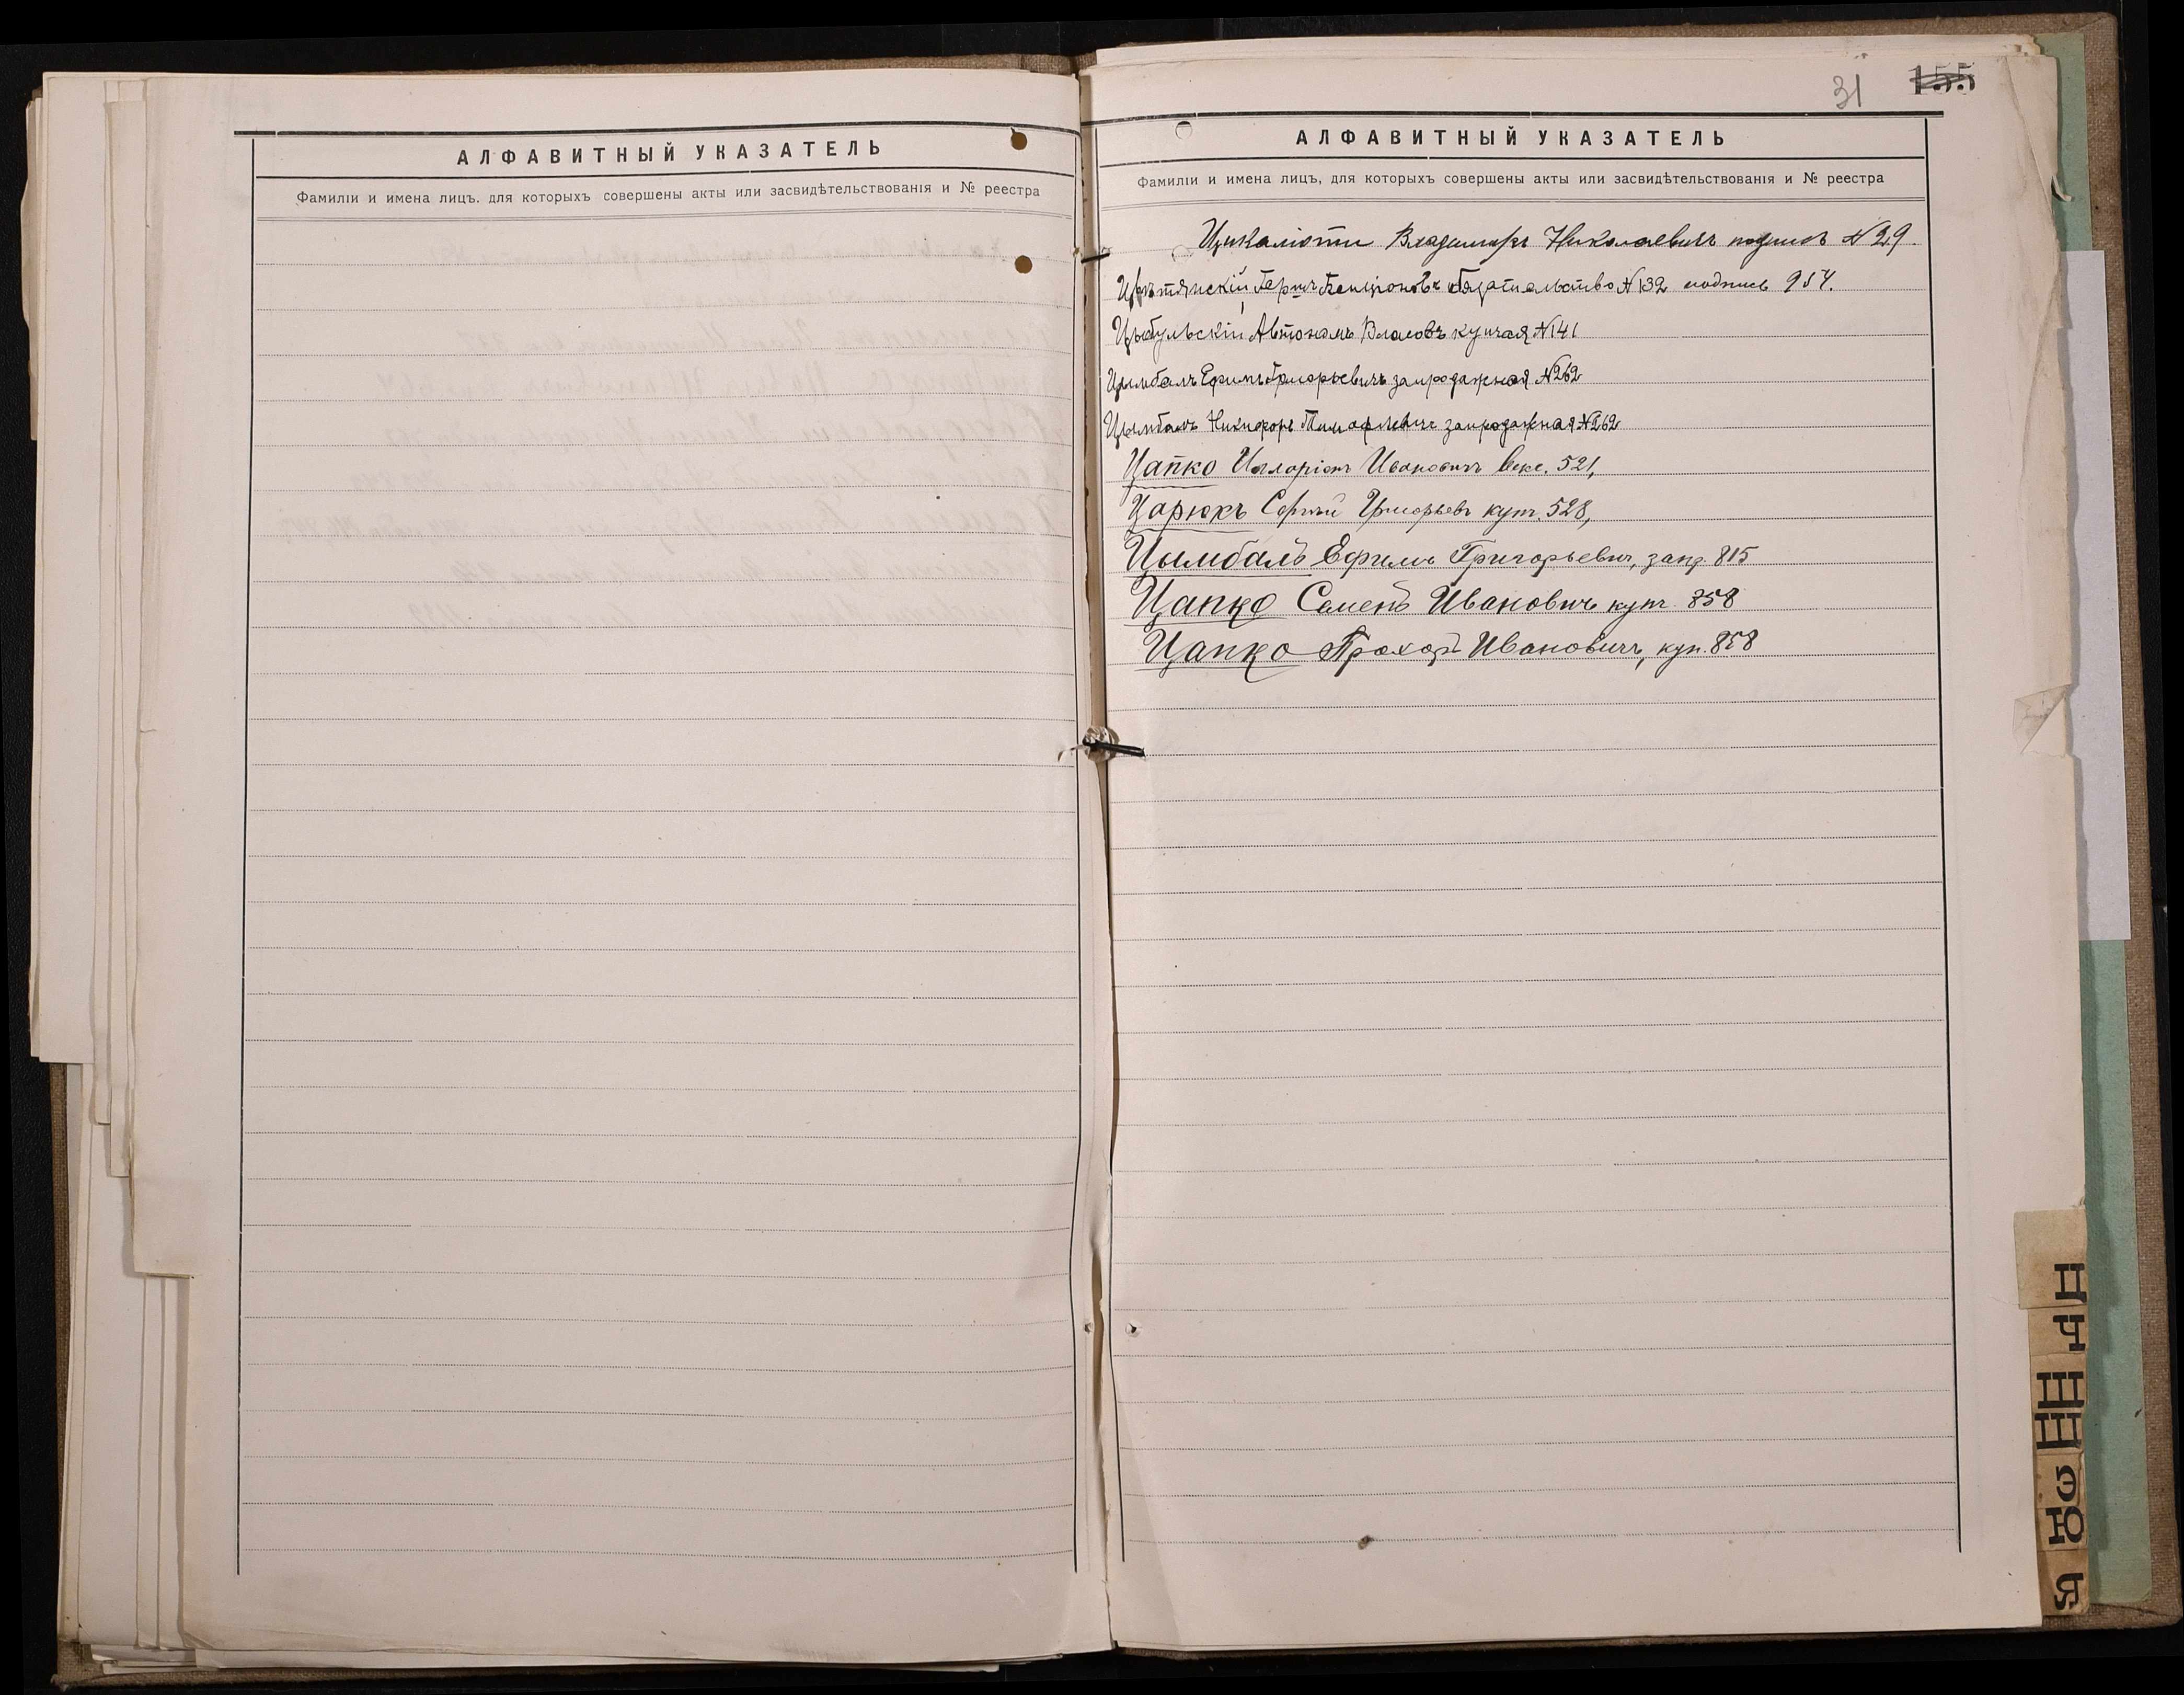 АЛФАВИТНЫЙ УКАЗАТЕЛЬ
Фамиліи и имена лицъ. для которыхъ совершены акты или засвидѣтельствованія и № реестра
31 155
АЛФАВИТНЫЙ УКАЗАТЕЛЬ
Фамиліи и имена лицъ, для которыхъ совершены акты или засвидѣтельствованія и № реестра
Цикаліоти Владиміръ Николаевичъ подпись №29.
Бенціоновъ обязательство №132 подпись 954.
Цыбульскій Автономъ Власовъ купчая №141
Цымбалъ Ефимъ Григорьевичъ запродажная №262
Цымбалъ Никифоръ Тимофѣевичъ запродажная №262
Цапко Илларіонъ Ивановичъ векс. 521,
Царюкъ Сергѣй Григорьевъ купч. 528,
Цымбалъ Ефимъ Григорьевич, запр. 815
Цапко Семенъ Ивановичъ купч. 858
Цапко Прохоръ Ивановичъ, куп. 858
Ц
Ч
Ш
Щ
Э
Ю
Я